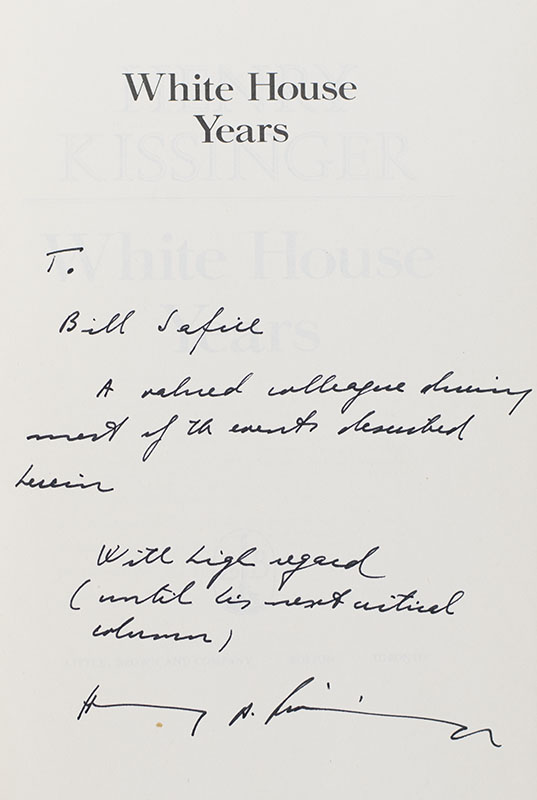 White House
Years
To
Bill Safire
A valued colleague during
most of the events described
herein
With high regard
(until his next critical
column)
Henry A. Kissinger
HENRY
KISSINGER
White House
Years
LITTLE, BROWN AND COMPANY BOSTON TORONTO